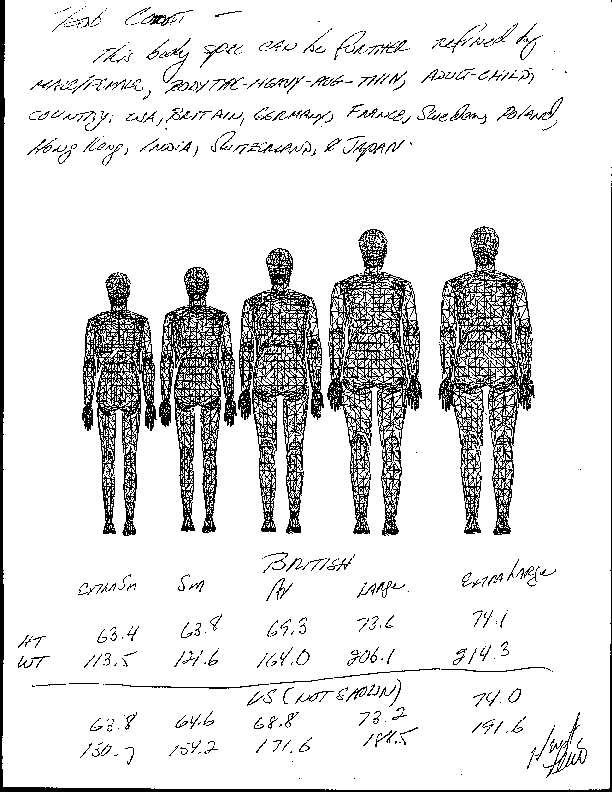 This body spec can be further refined by
MALE/FEMALE, BODYTYPE-HEAVY-AVG-THIN, ADULT-CHILD,
COUNTRY: USA, BRITAIN, GERMANY, FRANCE, Sweden, Poland,
Hong Kong, INDIA, SWITZERLAND, & JAPAN.
BRITISH
EXTRA Sm Sm AV LARGE EXTRA LARGE
HT 63.4 63.8 69.3 73.6 74.1
WT 113.5 121.6 164.0 206.1 214.3
US (NOT SHOWN)
63.8 64.6 68.8 73.2 74.0
150.7 154.2 171.6 188.5 191.6